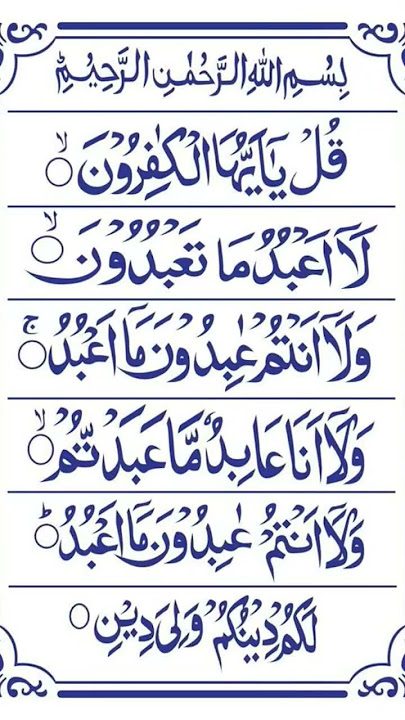 بِسْمِ اللهِ الرَّحْمٰنِ الرَّحِيْمِ
قُلْ يٰۤاَيُّهَا الْكٰفِرُوْنَ ۙ○
لَاۤ اَعْبُدُ مَا تَعْبُدُوْنَ ۙ○
وَلَاۤ اَنْتُمْ عٰبِدُوْنَ مَاۤ اَعْبُدُ ۚ○
وَلَاۤ اَنَا عَابِدٌ مَّا عَبَدْتُّمْ ۙ○
وَلَاۤ اَنْتُمْ عٰبِدُوْنَ مَاۤ اَعْبُدُ ؕ○
لَكُمْ دِيْنُكُمْ وَلِىَ دِيْنِ ○